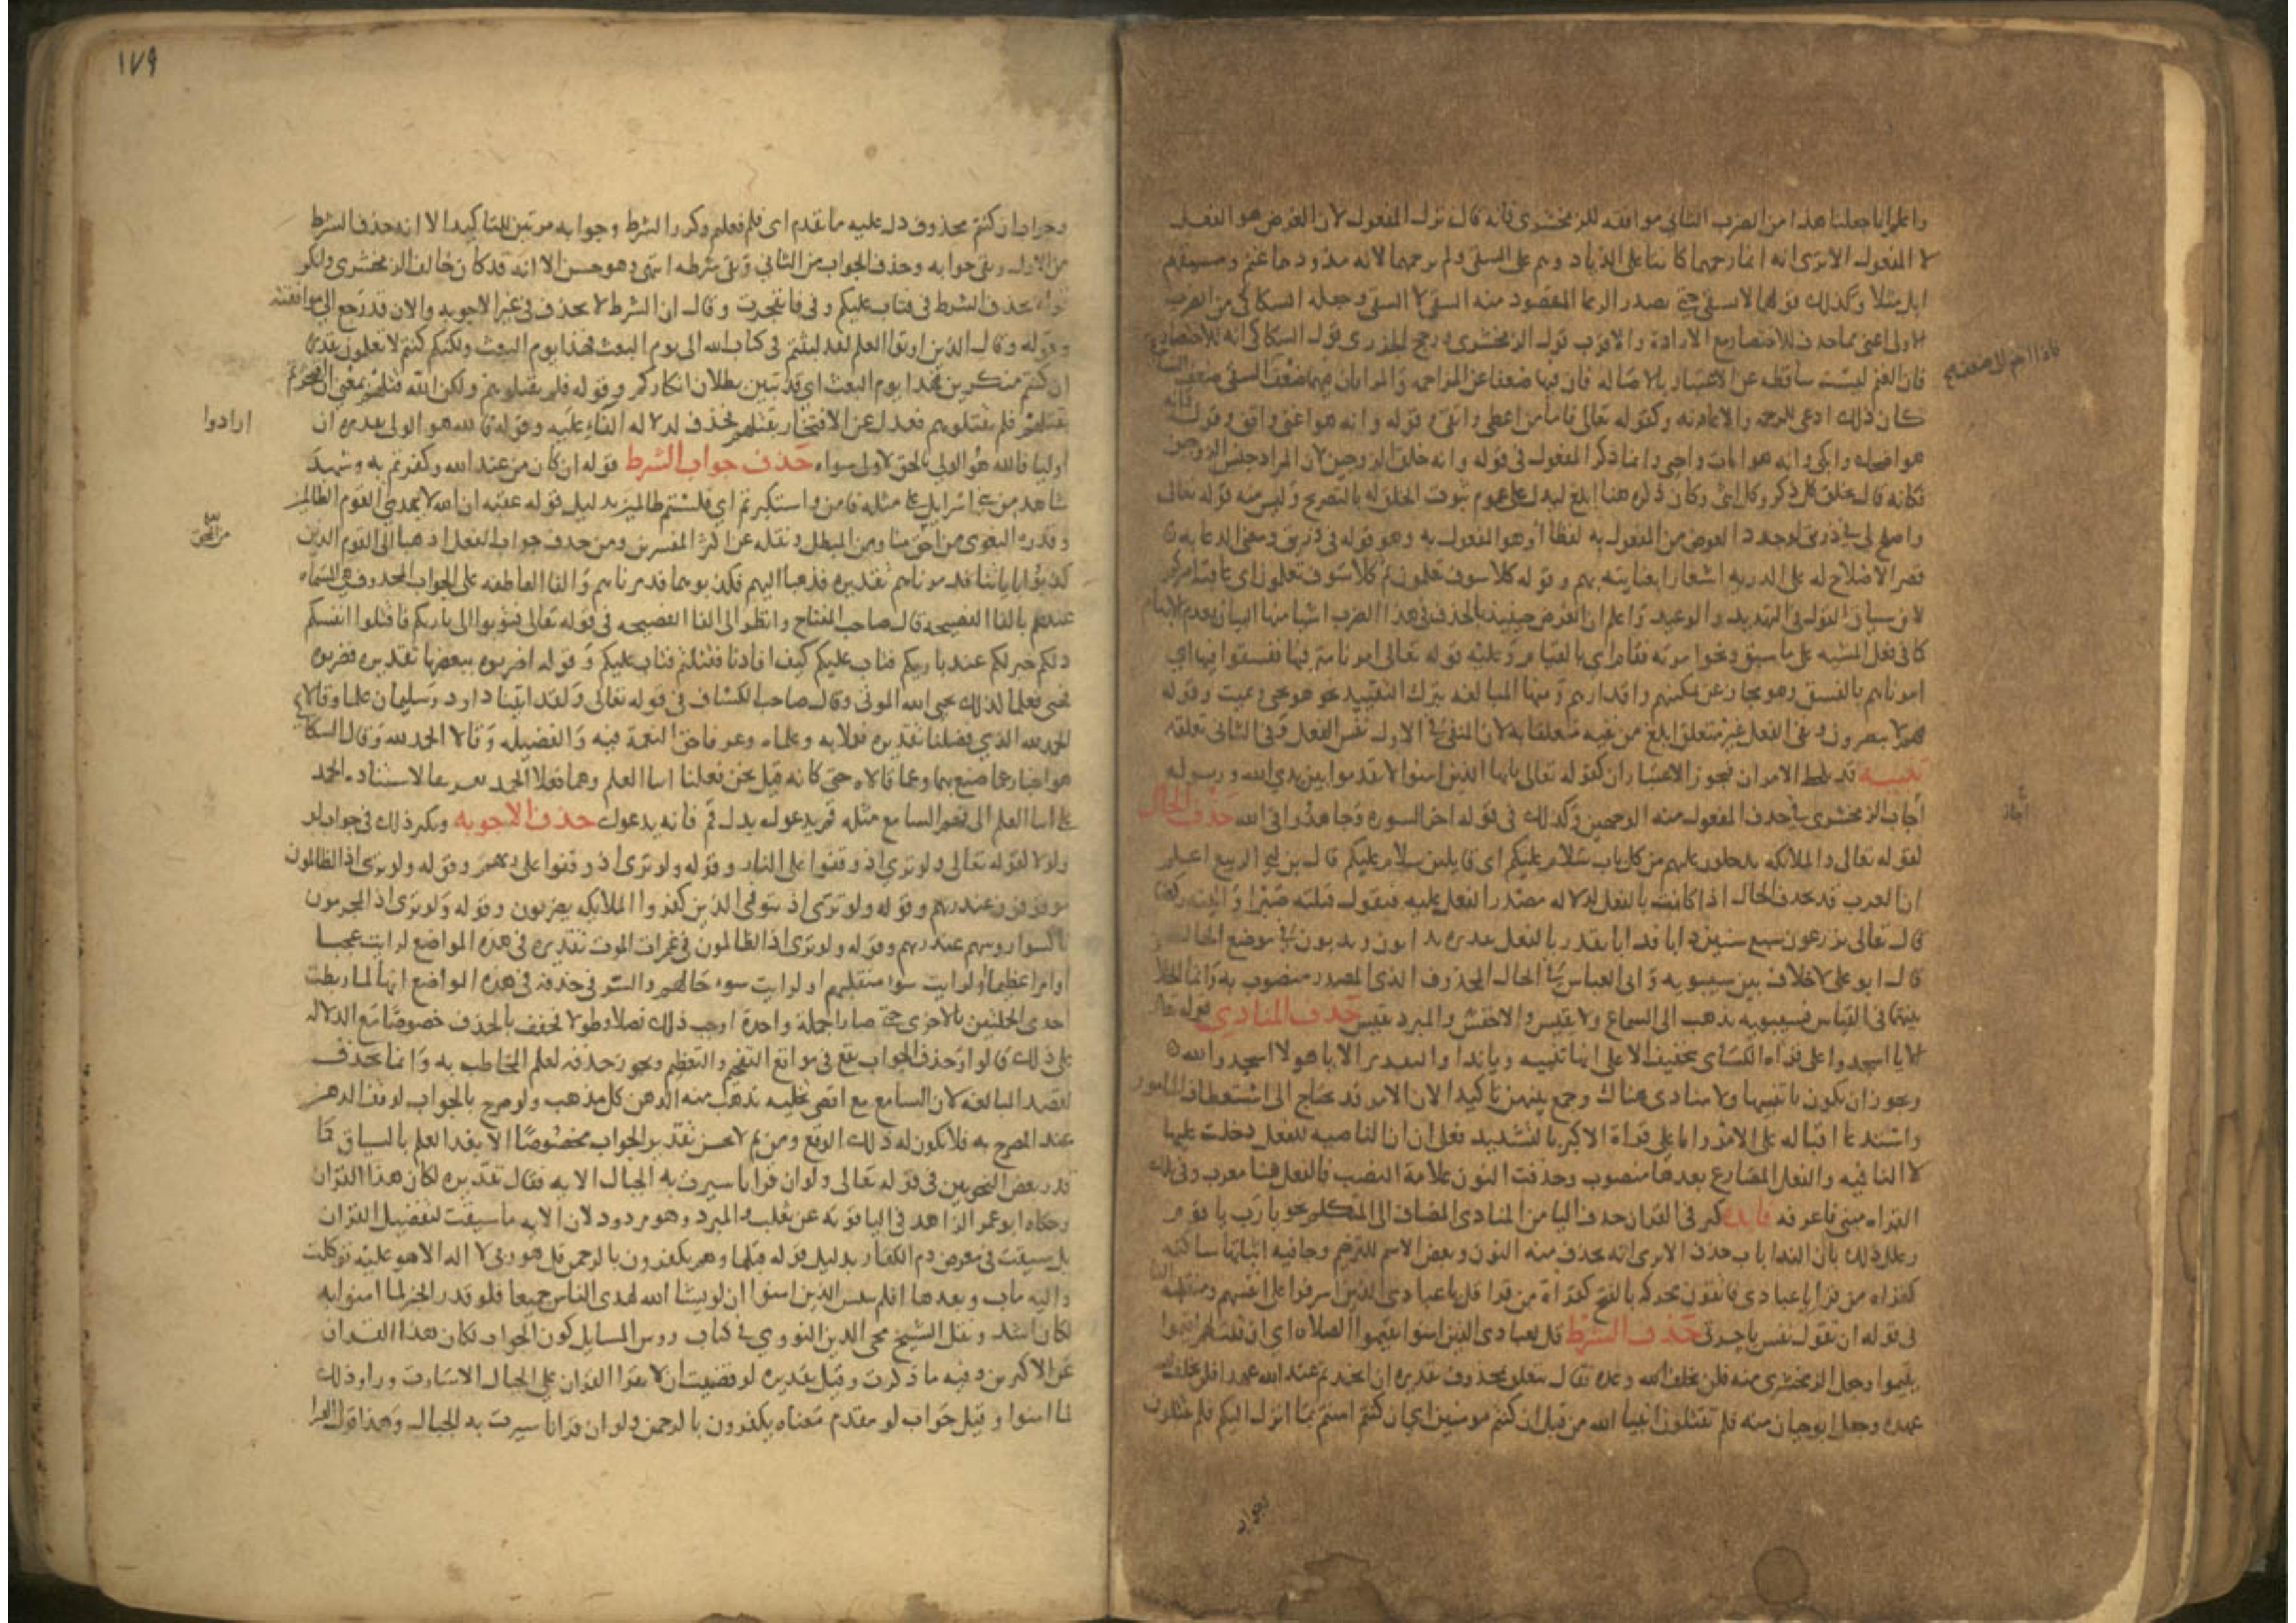 واعلم انا جعلنا هذا من الضرب الثاني موافقه للزمخشري فانه قال ترك المفعول لان الغرض هو الفعل
لا المفعول الا ترى انه انما رحمهما كانتا على الذياد وهم على السقي ولم يرحمهما لانه مذودهما غنم ومسقيهم
ابل مثلا وكذلك قولهما لا نسقي حتى يصدر الرعا المقصود منه السقي لا المسقي وجعله السكاكي من الضرب
الاولى اعنى مما حذف للاختصار مع الارادة والاقرب قول الزمخشري ورجح الجزري قول السكاكي انه للاختصار
فان الغنم ليست ساقطه عن الاعتبار بالاصاله فان فيها ضعفا عن المزاحمه والمراتان فيهما ضعف
كان ذلك ادعى للرحمه والاعانه وكقوله تعالى فاما من اعطى واتقى وقوله وانه هو اغنى واقنى وقوله
هو اضحك وابكى وانه هو امات واحيى وانما ذكر المفعول في قوله وانه خلق الزوجين لان المراد جنس الزوجين
فكانه قال يخلق كل ذكر وكل انثى وكان ذكره هنا ابلغ ليدل على عموم ثبوت الخلق له بالتصريح وليس منه قوله تعالى
واصلح لي في ذريتي لوجود العوض من المفعول به لفظا وهو المفعول به وهو قوله في ذريتي ومعنى الدعا به
قصر الاصلاح له على الذريه اشعارا بعنايته بهم وقوله كلا سوف تعلمون ثم كلا سوف تعلمون اى عاقبة امركم
لان سياق القول في التهديد والوعيد واعلم ان الغرض حينئذ بالحذف في هذا الضرب اشيا منها البيان بعد الابهام
كما في فعل المشيه على ما سبق ونحو امرته فقام اي بالقيام وعليه قوله تعالى امرنا مترفيها ففسقوا فيها اي
امرناهم بالفسق وهو مجاز عن تمكينهم واقدارهم ومنها المبالغه بترك التقييد نحو هو يحيي ويميت وقوله
فهم لا يبصرون ونفى الفعل غير متعلق ابلغ من نفيه متعلقا به لان المنفي في الاول نفس الفعل وفي الثاني تعلقه
تنبيه قد يلحظ الامران فيجوز الاعتباران كقوله تعالى يايها الذين امنوا لا تقدموا بين يدي الله ورسوله
اجاب الزمخشري في حذف المفعول منه الوجهين وكذلك في قوله اخر السورة وجاهدوا في الله حذف الحال
لقوله تعالى والملائكه يدخلون عليهم من كل باب سلام عليكم اى قايلين سلام عليكم قال ابن ابي الربيع اعلم
ان العرب قد تحذف الحال اذا كانت بالفعل لدلاله مصدر الفعل عليه فيقول قتلته صبرا واتيته ركضا
قال تعالى تزرعون سبع سنين دابا فدابا يقدر بالفعل تقديره تدابون وتدابون في موضع الحال
قال ابو على لا خلاف بين سيبويه وابي العباس في الحال المحذوف الذى المصدر منصوب به وانما الخلاف
بينهما في القياس فسيبويه يذهب الى السماع ولا يقيس والاخفش والمبرد يقيس حذف المنادى قوله تعالى
الا يا اسجدوا على قراه الكسائي بتخفيف الا على انها تنبيه ويا ندا والتقدير الا يا هولا اسجدوا لله
ويجوز ان يكون يا تنبيها ولا منادى هناك وجمع بينهما تاكيدا لان الامر قد يحتاج الى استعطاف المامور
واستدعا اقباله على الامر واما على قراة الاكثر بالتشديد فعلى ان ان الناصبه للفعل دخلت عليها
لا النافيه والفعل المضارع بعدها منصوب وحذفت النون علامة النصب فالفعل هنا معرب وفي تلك
القراه مبنى فاعرفه فايده كثر في القران حذف اليا من المنادى المضاف الى المتكلم نحو يا رب يا قوم
وعلل ذلك بان الندا باب حذف الا ترى انه يحذف منه التنوين وبعض الاسم للترخيم وجا فيه اثباتها ساكنه
كقراه من قرا يا عبادى فاتقون ومحركه بالفتح كقراة من قرا قل يا عبادي الذين اسرفوا على انفسهم ومنقلبه
في قوله ان تقول نفس يا حسرتى حذف الشرط قل لعبادى الذين امنوا يقيموا الصلاه اى ان قلت لهم اقيموا
يقيموا وجعل الزمخشري منه فلن يخلف الله وعده فقال يتعلق بمحذوف تقديره ان اتخذتم عند الله عهدا فلن يخلف
عهده وجعل ابو حيان منه فلم تقتلون انبيا الله من قبل ان كنتم مومنين اي ان كنتم امنتم بما انزل اليكم فلم تقتلون
وجواب
اجاز
١٧٩
وجواب ان كنتم محذوف دل عليه ما تقدم اى فلم فعلتم وكرر الشرط وجوابه مرتين للتاكيد الا انه حذف الشرط
من الاول وبقى جوابه وحذف الجواب من الثاني وبقى شرطه انتهى وهو حسن الا انه قد كان خالف الزمخشري وانكر
قوله بحذف الشرط في فتاب عليكم وفي فانفجرت وقال ان الشرط لا يحذف في غير الاجوبه والان قد رجع الى موافقته
وقوله وقال الذين اوتوا العلم لقد لبثتم في كتاب الله الى يوم البعث فهذا يوم البعث ولكنكم كنتم لا تعلمون تقديره
ان كنتم منكرين فهذا يوم البعث اي قد تبين بطلان انكاركم وقوله فلم تقتلوهم ولكن الله قتلهم بمعنى ان افتخرتم
بقتلهم فلم تقتلوهم فعدل عن الافتخار بقتلهم فحذف لدلاله الفاء عليه وقوله فالله هو الولي تقديره ان
ارادوا
اوليا فالله هو الولي بالحق لا ولي سواه حذف جواب الشرط قوله ان كان من عند الله وكفرتم به وشهد
شاهد من بني اسرايل على مثله فامن واستكبرتم اي فلستم ظالمين بدليل قوله عقبه ان الله لا يهدي القوم الظالمين
وقدره البغوى من احق منا ومن المبطل ونقله عن اكثر المفسرين ومن حذف جواب الفعل اذهبا الى القوم الذين
من المحق
كذبوا باياتنا فدمرناهم تقديره فذهبا اليهم فكذبوهما فدمرناهم والفا العاطفه على الجواب المحذوف هي المسماه
عندهم بالفا الفصيحه قال صاحب المفتاح وانظر الى الفا الفصيحه في قوله تعالى فتوبوا الى باريكم فاقتلوا انفسكم
ذلكم خير لكم عند باريكم فتاب عليكم كيف افادنا ففعلتم فتاب عليكم وقوله اضربوه ببعضها تقديره فضربوه
فحيي فعلنا كذلك يحيي الله الموتى وقال صاحب الكشاف في قوله تعالى ولقد اتينا داود وسليمان علما وقالا
الحمد لله الذي فضلنا تقديره فعملا به وعلماه وعرفا حق النعمة فيه والفضيله وقالا الحمد لله وقال السكاكي
هو اخبار عما صنع بهما وعما قالاه حتى كانه قيل نحن فعلنا اتيا العلم وهما فعلا الحمد
على اتيا العلم الى فهم السامع مثله قم يدعوك بدل قم فانه يدعوك حذف الاجوبه ويكثر ذلك في جواب لو
ولولا كقوله تعالى ولو ترى اذ وقفوا على النار وقوله ولو ترى اذ وقفوا على ربهم وقوله ولو ترى اذ الظالمون
موقوفون عند ربهم وقوله ولو ترى اذ يتوفى الذين كفروا الملايكه يضربون وقوله ولو ترى اذ المجرمون
ناكسوا روسهم عند ربهم وقوله ولو ترى اذ الظالمون في غمرات الموت تقديره في هذه المواضع لرايت عجبا
او امرا عظيما ولرايت سوء منقلبهم او لرايت سوء حالهم والسر في حذفه في هذه المواضع انها لما ربطت
احدى الجملتين بالاخرى حتى صارا جملة واحدة اوجب ذلك لها فضلا وطولا فخفف بالحذف خصوصا مع الدلاله
على ذلك قالوا وحذف الجواب يقع في مواقع التفخيم والتعظيم ويجوز حذفه لعلم المخاطب به وانما يحذف
لقصد المبالغه لان السامع مع اقصى تخيله يذهب منه الذهن كل مذهب ولو صرح بالجواب لوقف الذهن
عند المصرح به فلا يكون له ذلك الوقع ومن ثم لا يحسن تقدير الجواب مخصوصا الا بعد العلم بالسياق كما
قدر بعض النحويين في قوله تعالى ولو ان قرانا سيرت به الجبال الايه فقال تقديره لكان هذا القران
وحكاه ابو عمر الزاهد في الياقوته عن ثعلب والمبرد وهو مردود لان الايه ما سيقت لتفضيل القران
بل سيقت في معرض ذم الكفار بدليل قوله قبلها وهم يكفرون بالرحمن قل هو ربي لا اله الا هو عليه توكلت
واليه متاب وبعدها افلم ييئس الذين امنوا ان لو يشا الله لهدى الناس جميعا فلو قدر الخبر لما امنوا به
لكان اشد ونقل الشيخ محي الدين النووي في كتاب روس المسايل كون الجواب لكان هذا القران
عن الاكثرين وفيه ما ذكرت وقيل تقديره لو قضيت ان لا يقرا القران على الجبال الا سارت وراوا ذلك
لما امنوا وقيل جواب لو مقدم معناه يكفرون بالرحمن ولو ان قرانا سيرت به الجبال وهذا قول الفرا